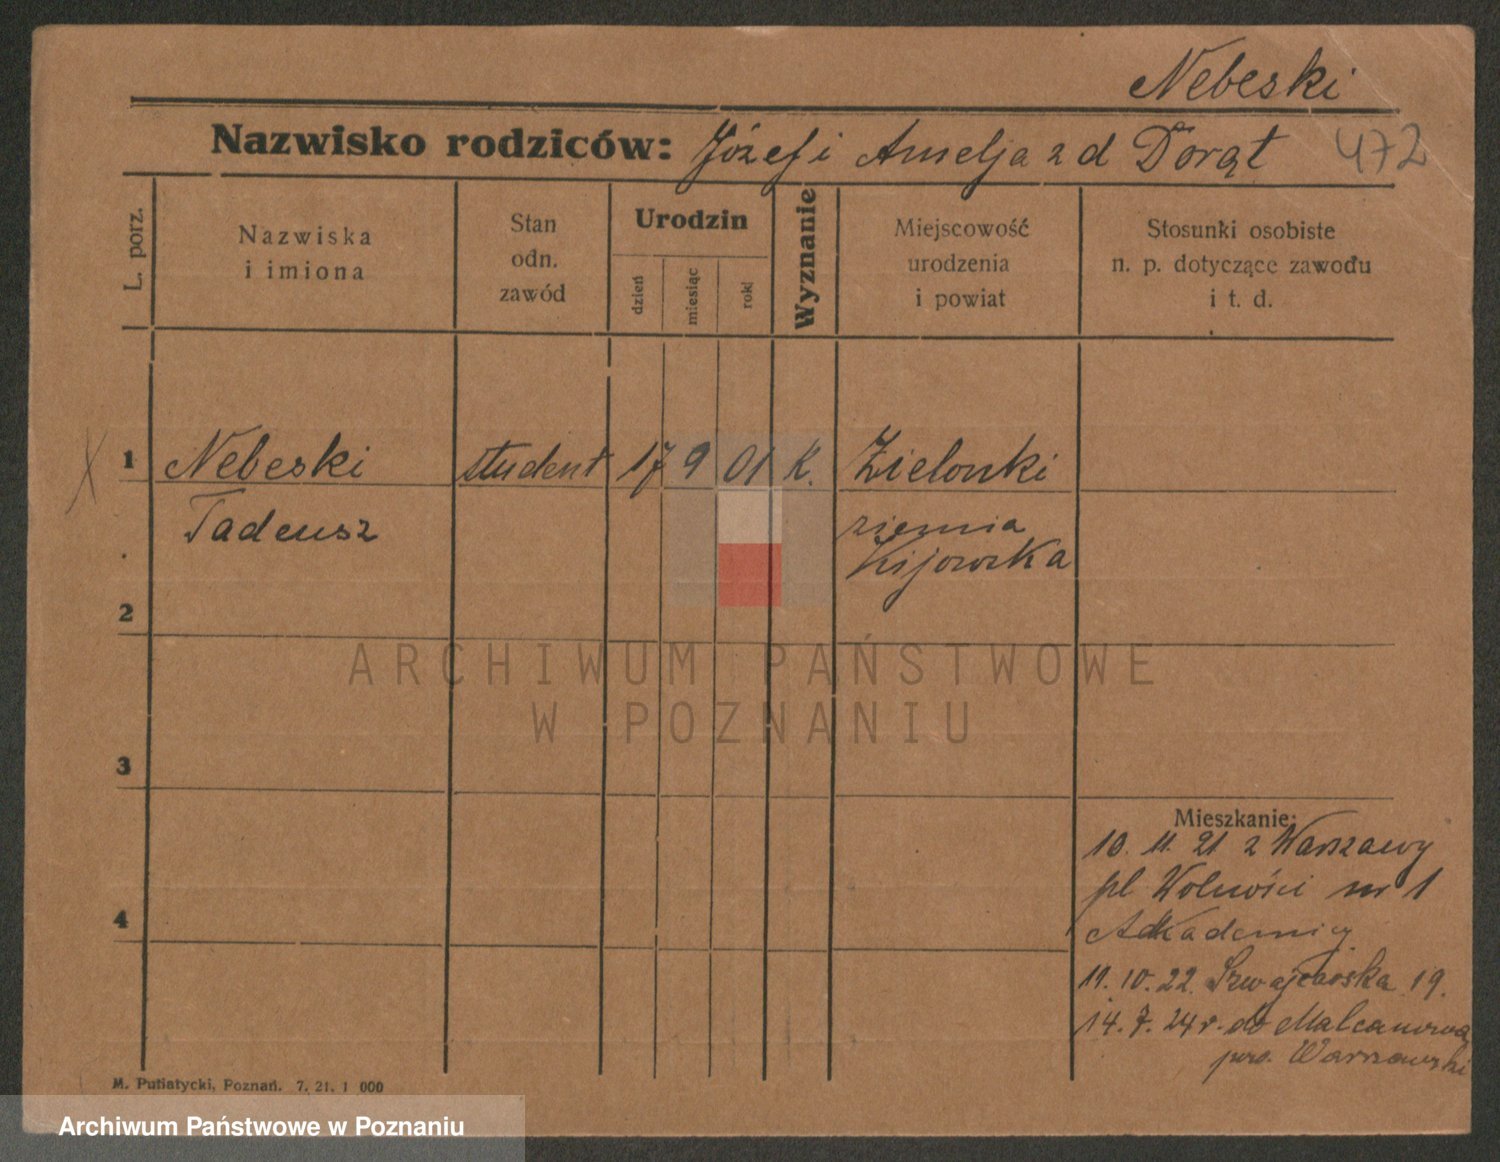 Nebeski
Nazwisko rodziców: Józef i Amelja z d Dorąt 472
L. porz.
Nazwiska
i imiona
Stan
odn.
zawód
Urodzin
dzień
miesiąc
rok
Wyznanie
Miejscowość
urodzenia
i powiat
Stosunki osobiste
n. p. dotyczące zawodu
i t. d.
1 Nebeski student 17 9 01 K. Zielonki
Tadeusz ziemia
Kijowska
2
3
Mieszkanie:
10. 11. 21 z Warszawy
pl Wolności nr 1
4
Akademicy
11. 10. 22. Szwajcarska 19.
14. 7. 24 r. do Malcanowa
pow. Warszawski
M. Putiatycki, Poznań. 7. 21. 1 000
ARCHIWUM PAŃSTWOWE
W POZNANIU
Archiwum Państwowe w Poznaniu